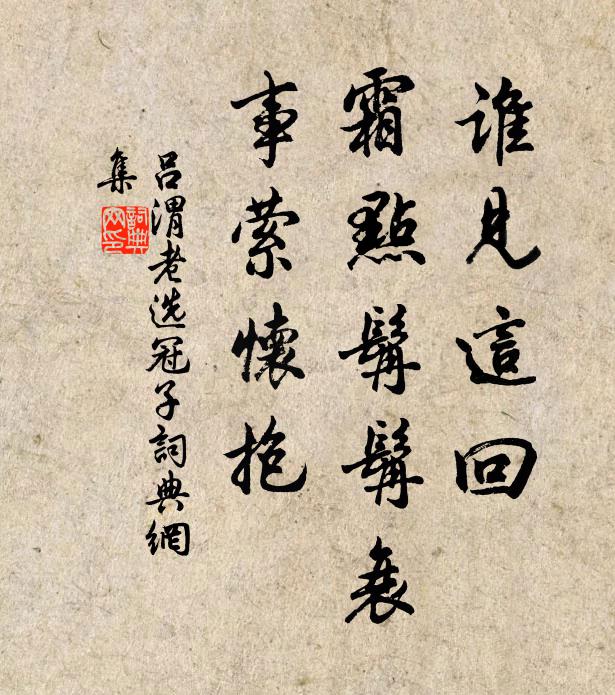 誰見這回
霜點髯髯衰
事縈懷抱
呂渭老選冠子詞典網
集
詞典網印